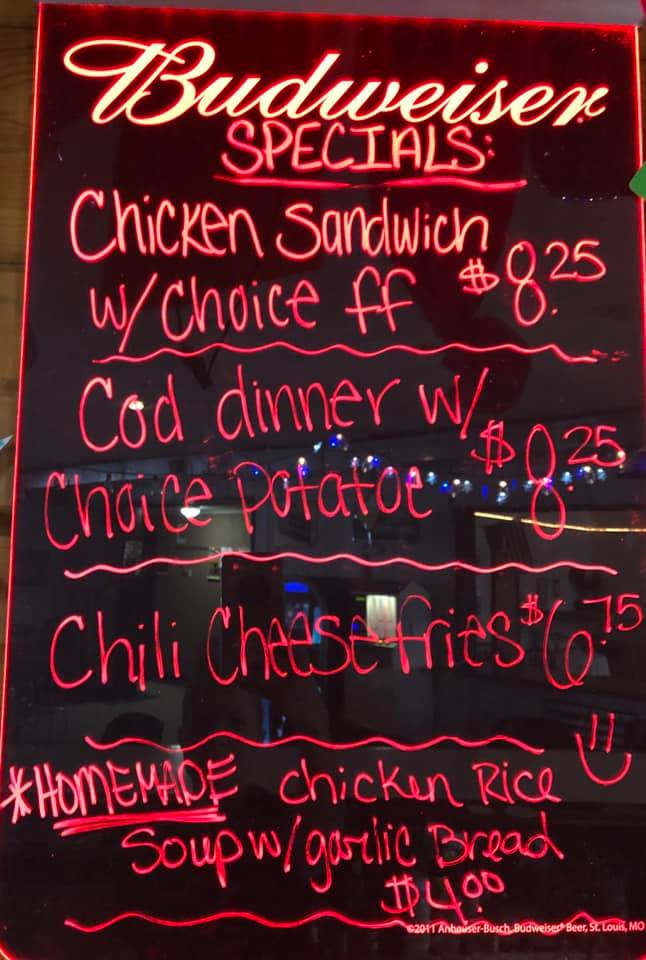 Budweiser
SPECIALS:
Chicken Sandwich
w/choice ff $8.25
Cod dinner w/
Choice Potatoe $8.25
Chili Cheese fries $6.75
*HOMEMADE chicken Rice
Soup w/garlic Bread
$4.00
©2011 Anheuser-Busch, Budweiser® Beer, St. Louis, MO